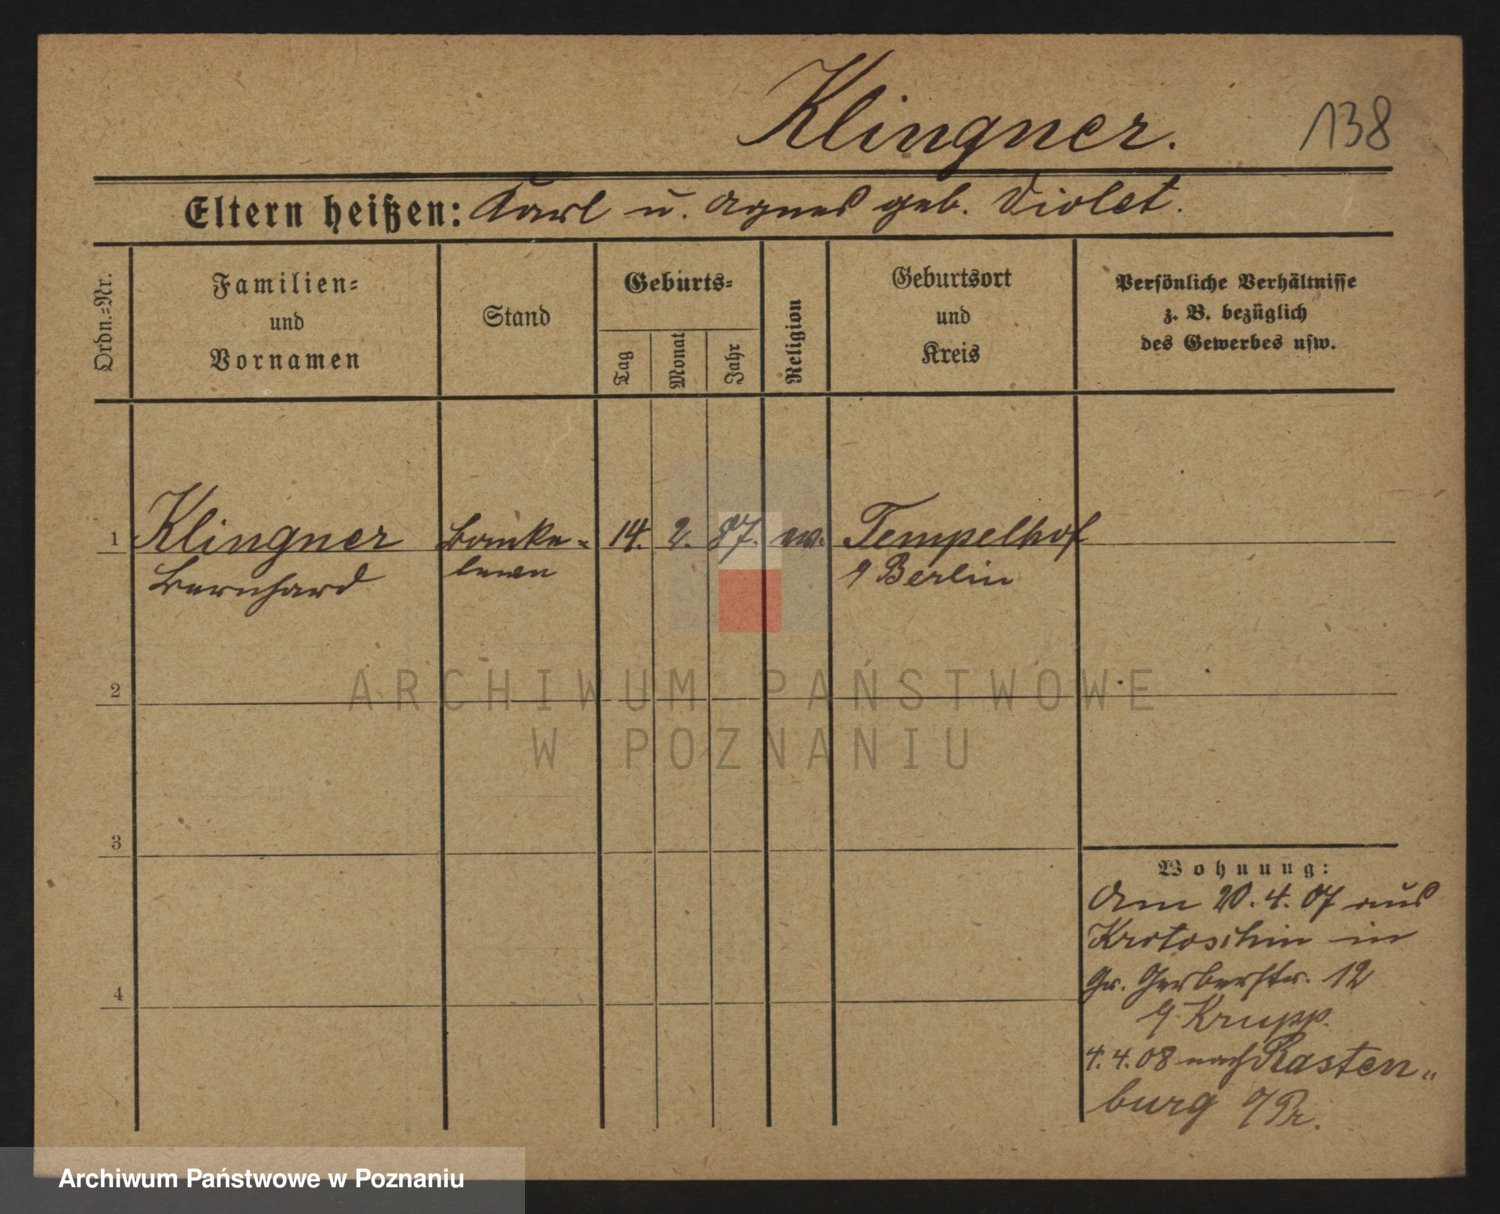 Klingner.
138
Eltern heißen: Karl u. Agnes geb. Violet.
Ordn.=Nr.
Familien=
und
Vornamen
Stand
Geburts=
Tag
Monat
Jahr
Religion
Geburtsort
und
Kreis
Persönliche Verhältnisse
z. B. bezüglich
des Gewerbes usw.
1
Klingner
Bernhard
14. 2. 87.
Tempelhof
Berlin
ARCHIWUM PAŃSTWOWE
W POZNANIU
2
3
4
Wohnung:
Am 20.4.07 aus
Krotoschin in
Gr. Gerberstr. 12
Krupp.
4.4.08 nach Rasten„
burg O/Pr.
Archiwum Państwowe w Poznaniu